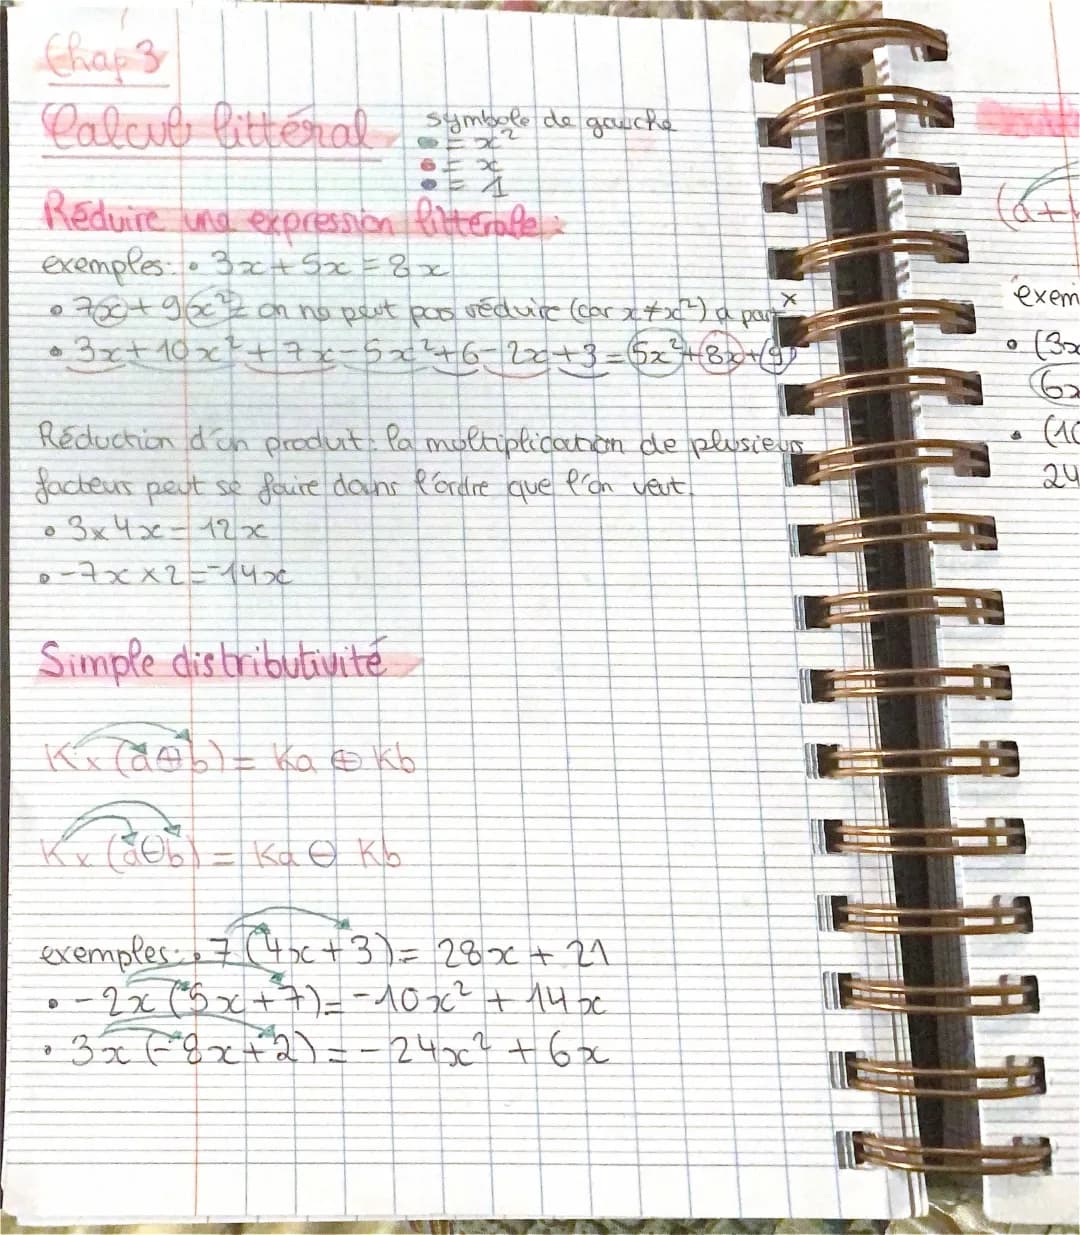 Chap 3
Calcul littéral
symbole de gauche
= x²
= x
= 1
Réduire une expression littérale :
exemples: • 3x + 5x = 8x
• 7x + 9x² = on ne peut pas réduire (car x ≠ x²) à part x
• 3x + 10x² + 7x - 5x² + 6 - 2x + 3 = 5x² + 8x + 9
Réduction d'un produit: la multiplication de plusieurs
facteurs peut se faire dans l'ordre que l'on veut.
• 3 × 4x = 12x
• -7x × 2 = -14x
Simple distributivité
K × (a + b) = Ka + Kb
K × (a - b) = Ka - Kb
exemples: • 7 (4x + 3) = 28x + 21
• -2x (5x + 7) = -10x² + 14x
• 3x (-8x + 2) = -24x² + 6x
(a+
exem
• (3x
6x
• (10
24